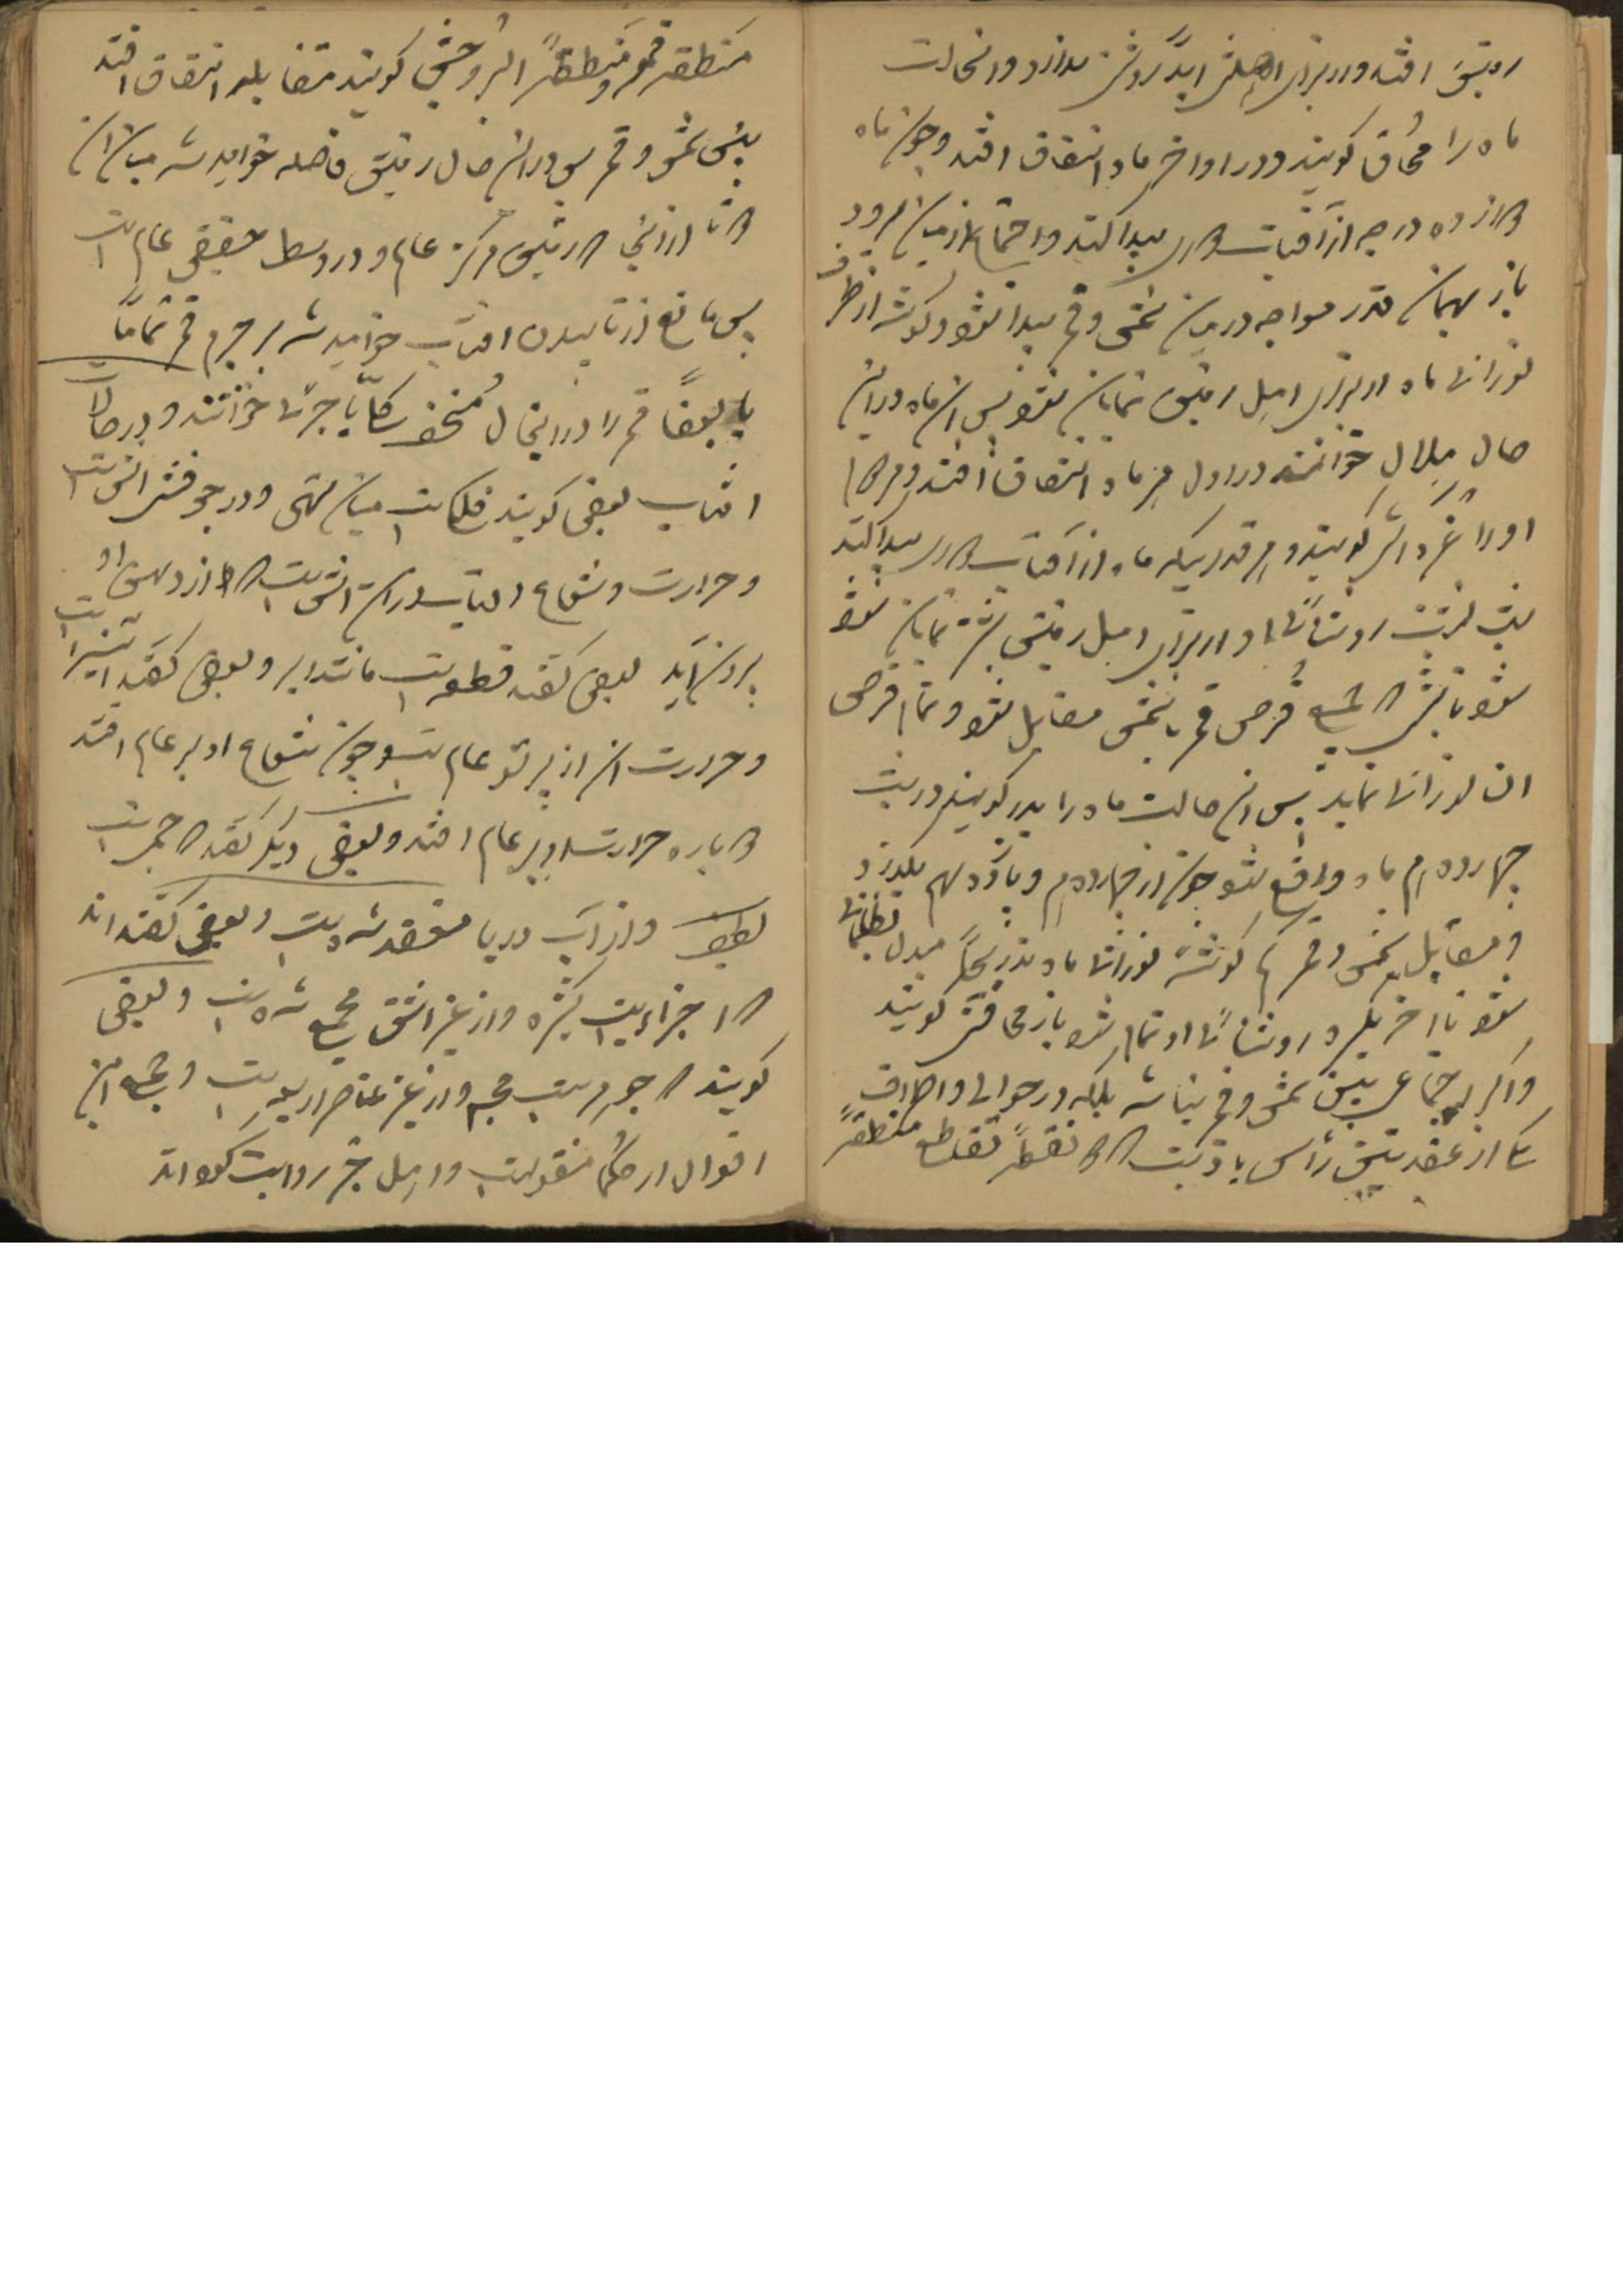 زمین افتد و از برای اهلش ابداً روشن ندارد و انحالت
ماه را محاق کویند و در اواخر ماه اتفاق افتد و چون ماه
دوازده درجه از آفتاب دوری پیدا کند و اجتماع از میان برود
باز بهمان قدر مواجه در میان شمس و قمر پیدا شود و کوشه از طرف
نورانی ماه از برای اهل زمین نمایان شود پس ان ماه در ان
حال هلال خوانند در اول هر ماه اتفاق افتد
او را غره کویند و هر قدریکه ماه از آفتاب دوری پیدا کند
روشنائی او از برای اهل زمین بیشتر نمایان شود
قرص قمر با شمس مقابل شود و تمام قرص
ان نورانی نماید پس ان حالت ماه را بدر کویند در شب
چهاردهم ماه واقع شود چون از چهاردهم و پانزدهم بگذرد
و مقابل شمس و قمر کوشه نورانی ماه بتدریج مبدل بظلمانی
شود تا اخر دیگر روشنائی او تمام شود باز محاقش کویند
و اگر اجتماعی بین شمس و قمر نباشد بلکه در حوالی و اطراف
یکی از عقدتین رأس یا ذنب که نقطهٔ تقاطع منطقهٔ
منطقه قمر و منطقهٔ البروجش کویند مقابله اتفاق افتد
بین شمس و قمر پس در ان حال زمین فاصله خواهد شد میان ان
مرکز عالم و در وسط حقیقی عالم است
پس مانع از تابیدن افتاب خواهد شد بر جرم قمر تماماً
یا بعضاً قمر را در اینحال مُنخسف کلیّ یا جزئی خوانند و در حالات
افتاب بعضی کویند فلکیست میان تهی و در جوفش اتش است
و حرارت و شعاع افتاب از ان اتش است که از دهن او
برون آید بعضی کفته قطعه‌ایست مانند ابر و بعضی کفته
و حرارت ان از پرتو عالم است و چون شعاع او بر عالم افتد
دوباره حرارت او بر عالم افتد و بعضی دیکر کفته که جسمیست
لطیف و از آب دریا منعقد شده است و بعضی کفته‌اند
که اجزاءیست کثیره و از غیر اتش مجتمع شده است و بعضی
کویند که جوهریست مجسم و از غیر عناصر اربعه است و جمیع این
اقوال از حکما منقولست و اهل خبر روایت کرده‌اند